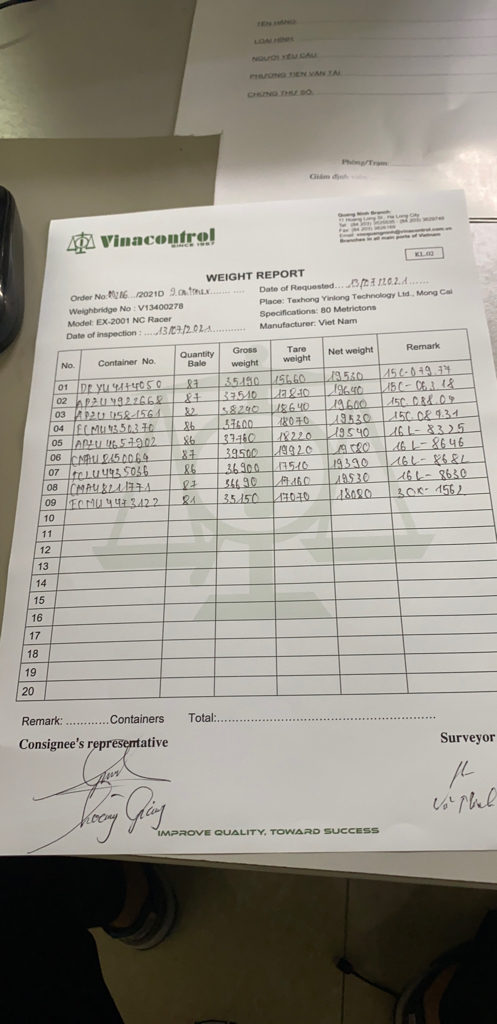 TÊN HÀNG:
LOẠI HÌNH:
NGƯỜI YÊU CẦU:
PHƯƠNG TIỆN VẬN TẢI
CHỨNG THƯ SỐ:
Phòng/Trạm:
Giám định viên:
Vinacontrol
SINCE 1957
Quang Ninh Branch:
11 Hoang Long St., Ha Long City
Branches in all main ports of Vietnam
KL.02
WEIGHT REPORT
Order No: /2021D 9 containers
Date of Requested 13/07/2021
Weighbridge No : V13400278
Place: Texhong Yinlong Technology Ltd., Mong Cai
Model: EX-2001 NC Racer
Specifications: 80 Metrictons
Date of inspection : 13/07/2021
Manufacturer: Viet Nam
No. Container No. Quantity Bale Gross weight Tare weight Net weight Remark
01 87 35190 15660 19530
02 APZU 4922668 87 37510 17870 19640
03 82 38240 18640 19600
04 FCMU 4350370 86 37600 18070 19530
05 APZU 4657902 86 37760 18220 19540 16L-8325
06 CMAU 8150064 87 39500 19920 19580 16L-8646
07 TCLU 4435066 86 36900 17510 19390 16L-8682
08 CMAU 8211771 87 36690 17160 19530 16L-8630
09 FCMU 4473122 81 35150 17070 18080
10
11
12
13
14
15
16
17
18
19
20
Remark: ............Containers Total:
Consignee's representative Surveyor
Hoàng Giang
IMPROVE QUALITY, TOWARD SUCCESS